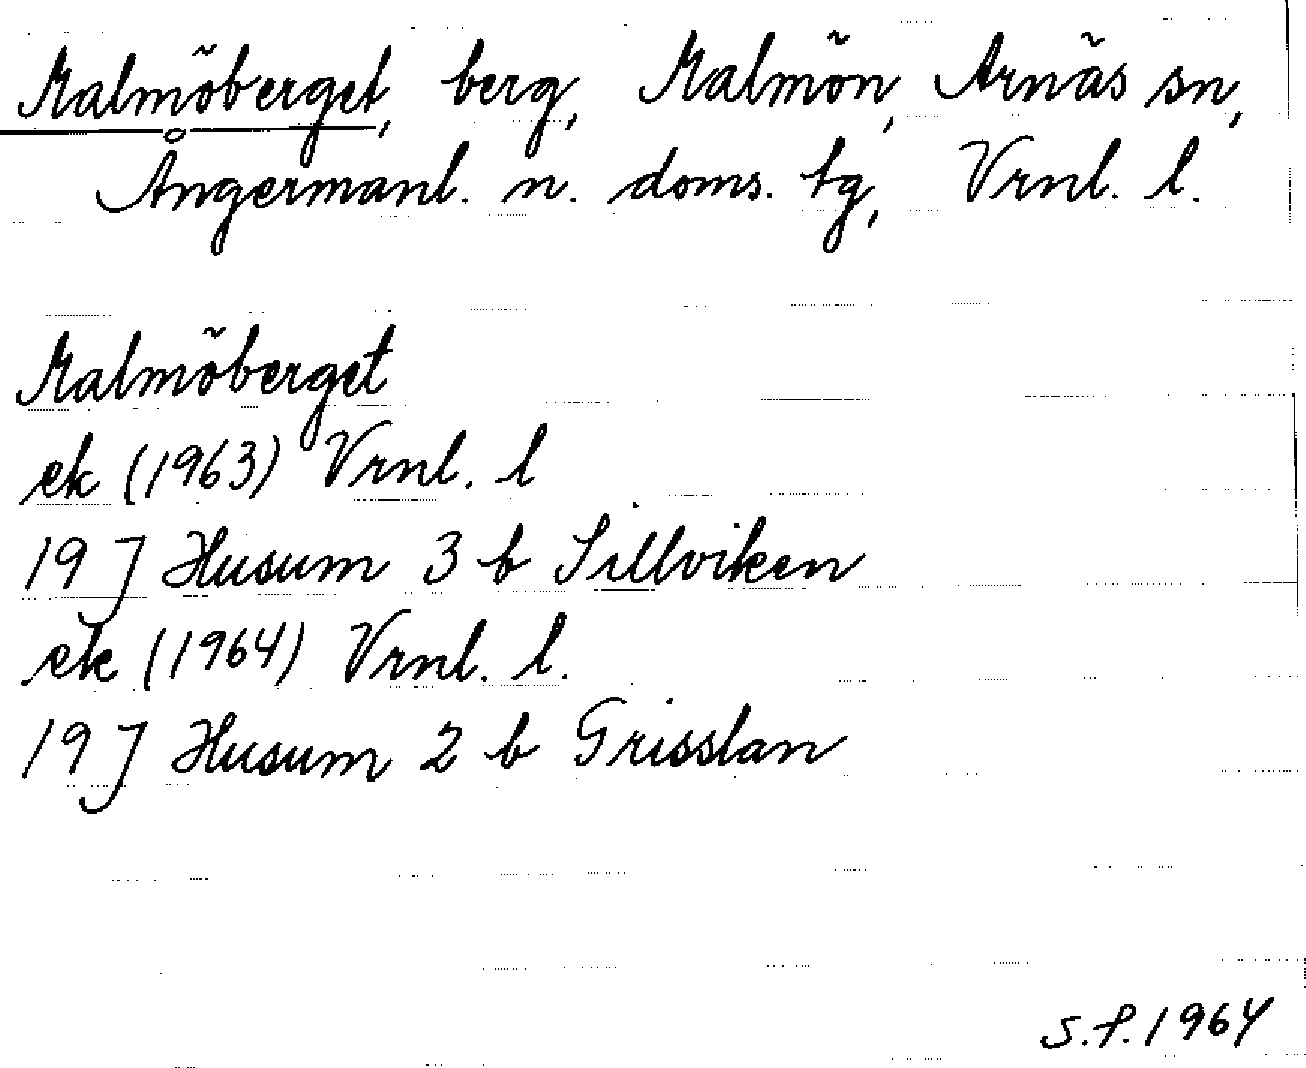 Malmöberget, berg, Malmön, Arnäs sn,
Ångermanl. n. doms. tg, Vrnl. l.
Malmöberget
ek (1963) Vrnl. l
19 J Husum 3 b Sillviken
ek (1964) Vrnl. l.
19 J Husum 2 b Grisslan
S.P. 1964